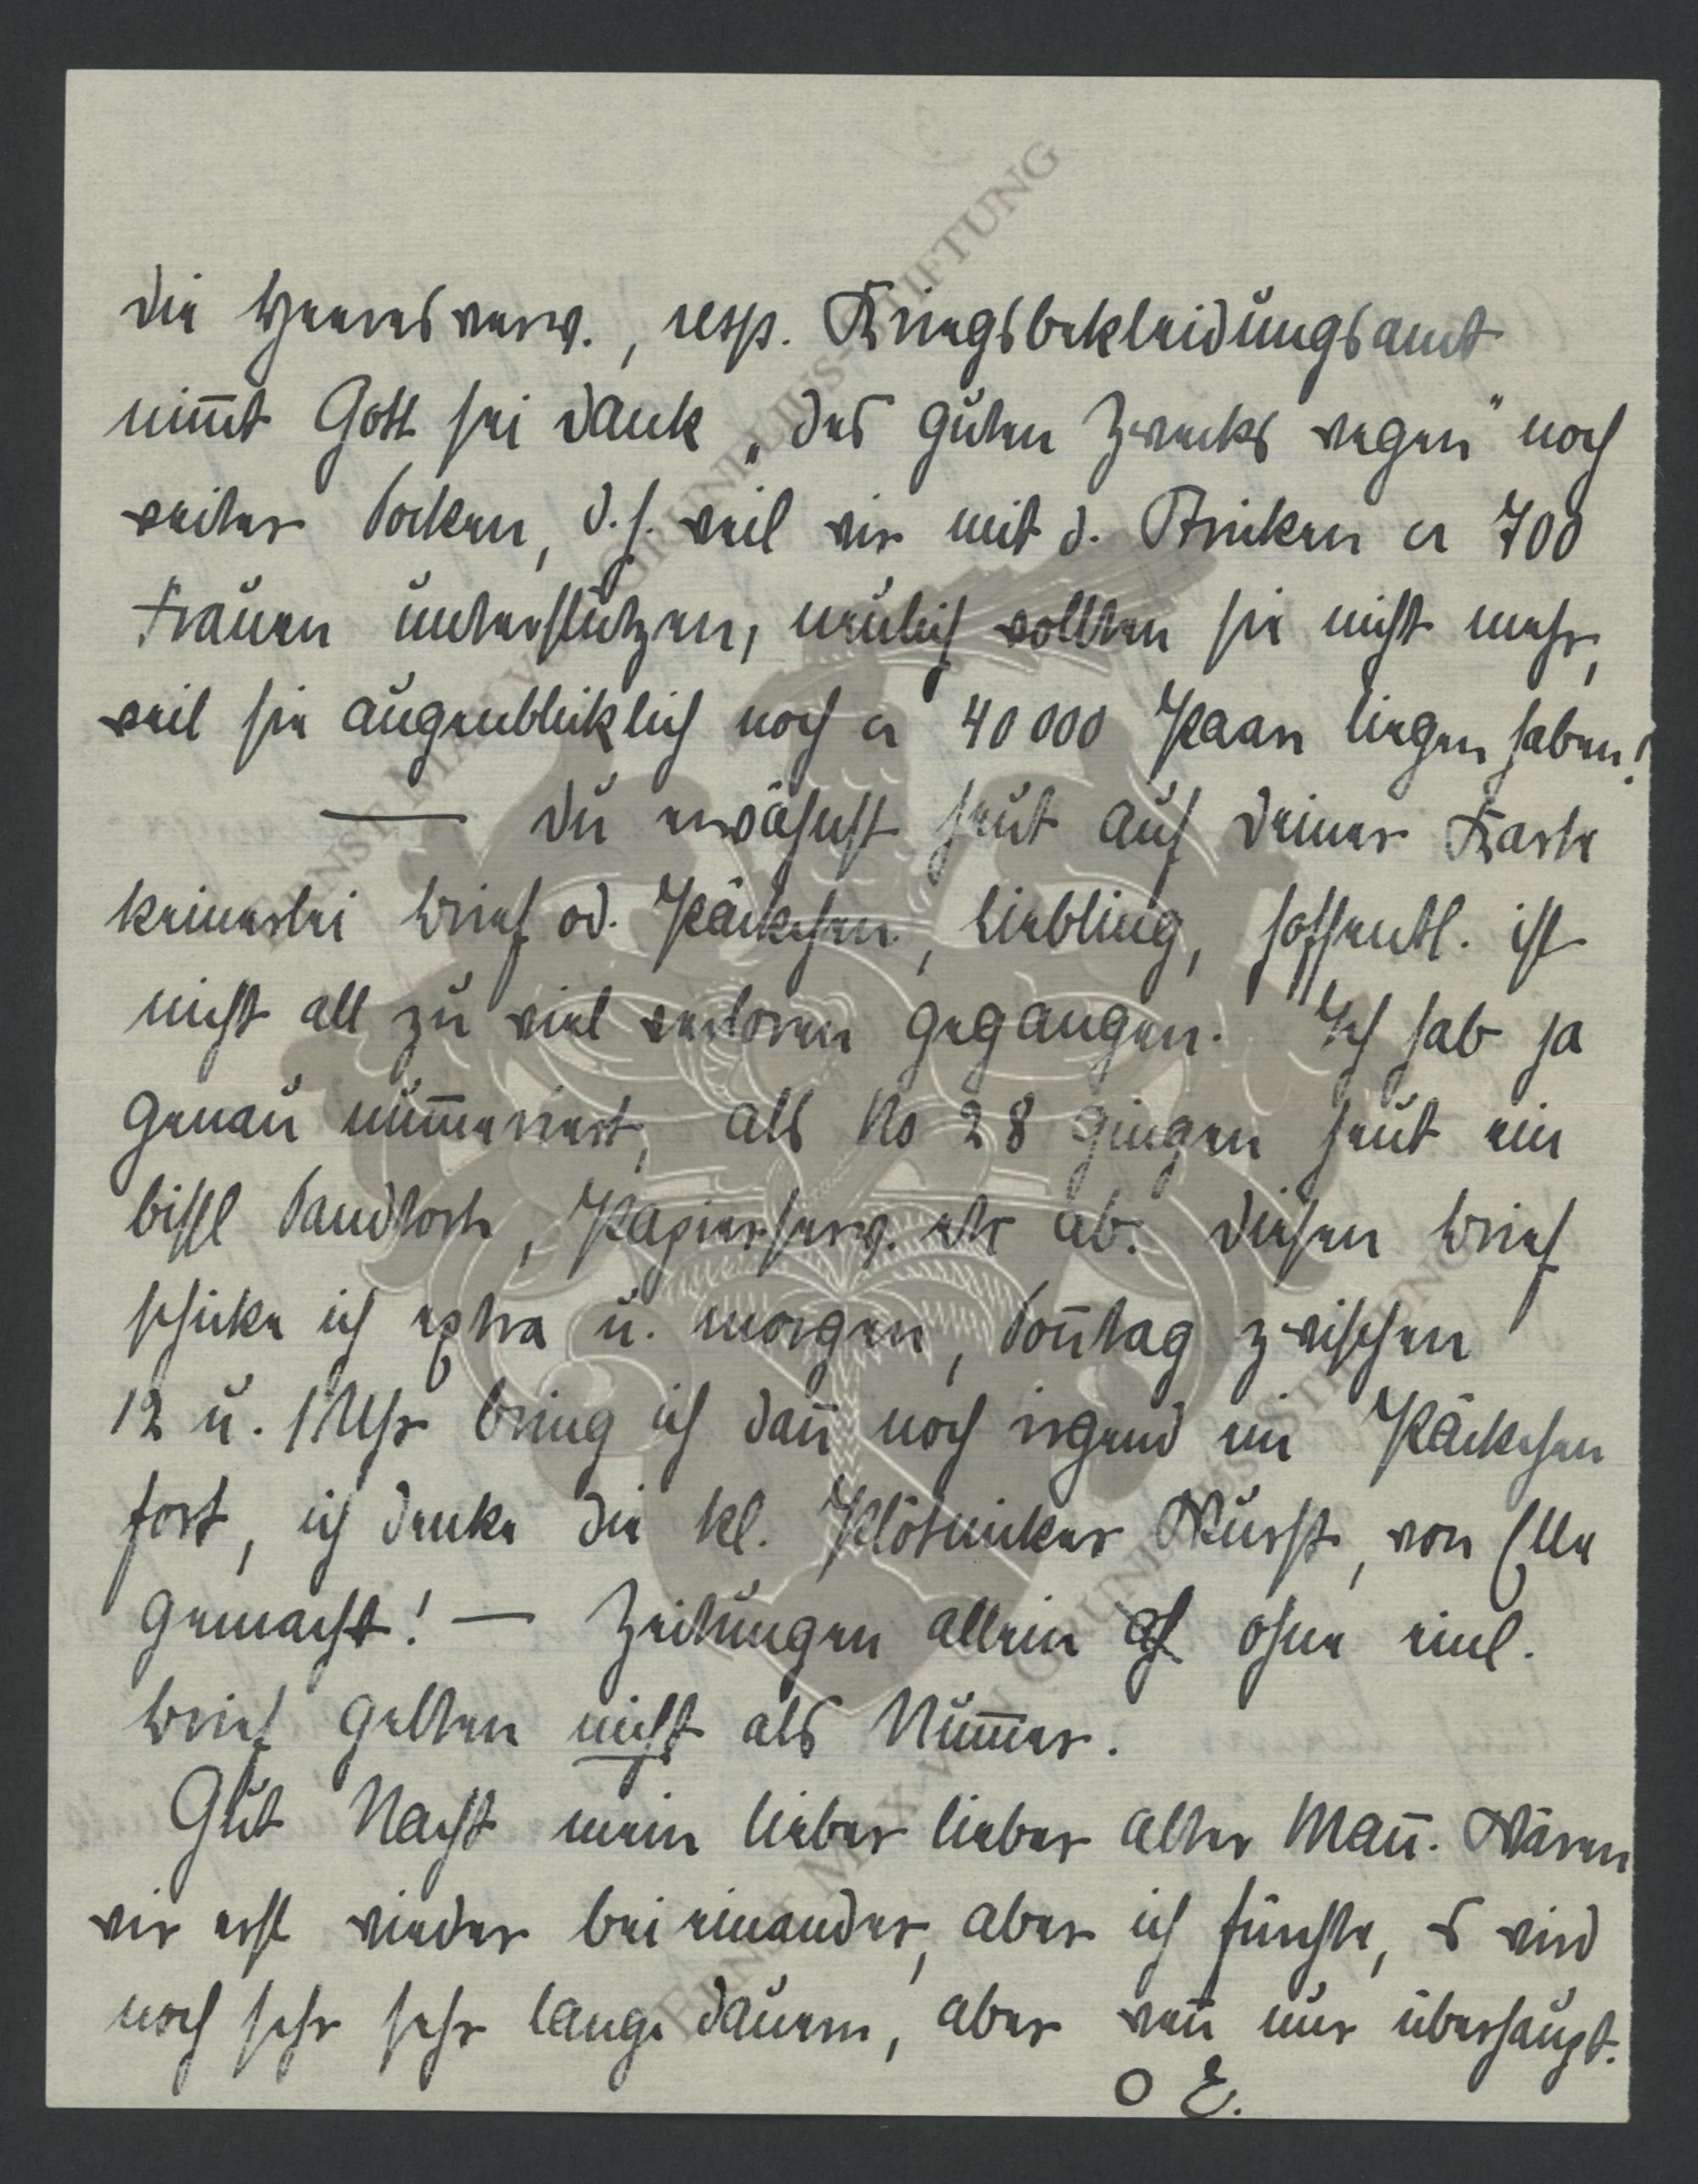 die Heeresverw., resp. Kriegsbekleidungsamt
nim̅t Gott sei Dank „des guten Zwecks wegen" noch
weiter Socken, d. h. weil wir mit d. Stricken ca 700
Frauen unterstützen, neulich wollten sie nicht mehr,
weil sie augenblicklich noch ca 40 000 Paar liegen haben!
— Du erwähnst heut auf Deiner Karte
keinerlei Brief od. Päckchen, Liebling, hoffentl. ist
nicht all zu viel verloren gegangen. Ich hab ja
genau num̅eriert, als No 28 gingen heut ein
bissl Sandtorte, Papierserv. etc ab. Diesen Brief
schicke ich extra u. morgen, Son̅tag zwischen
12 u. 1 Uhr bring ich dan̅ noch irgend ein Päckchen
fort, ich denke die kl. Plötnicker Wurst, von Elle
gemacht! — Zeitungen allein oh ohne einl.
Brief gelten nicht als Num̅er.
Gut Nacht mein lieber lieber alter Man̅. Wären
wir erst wieder beieinander, aber ich fürchte, s wird
noch sehr sehr lange dauern, aber wen̅ nur überhaupt.
O E.
ERNST MAX VON GRUNELIUS-STIFTUNG
ERNST MAX VON GRUNELIUS-STIFTUNG